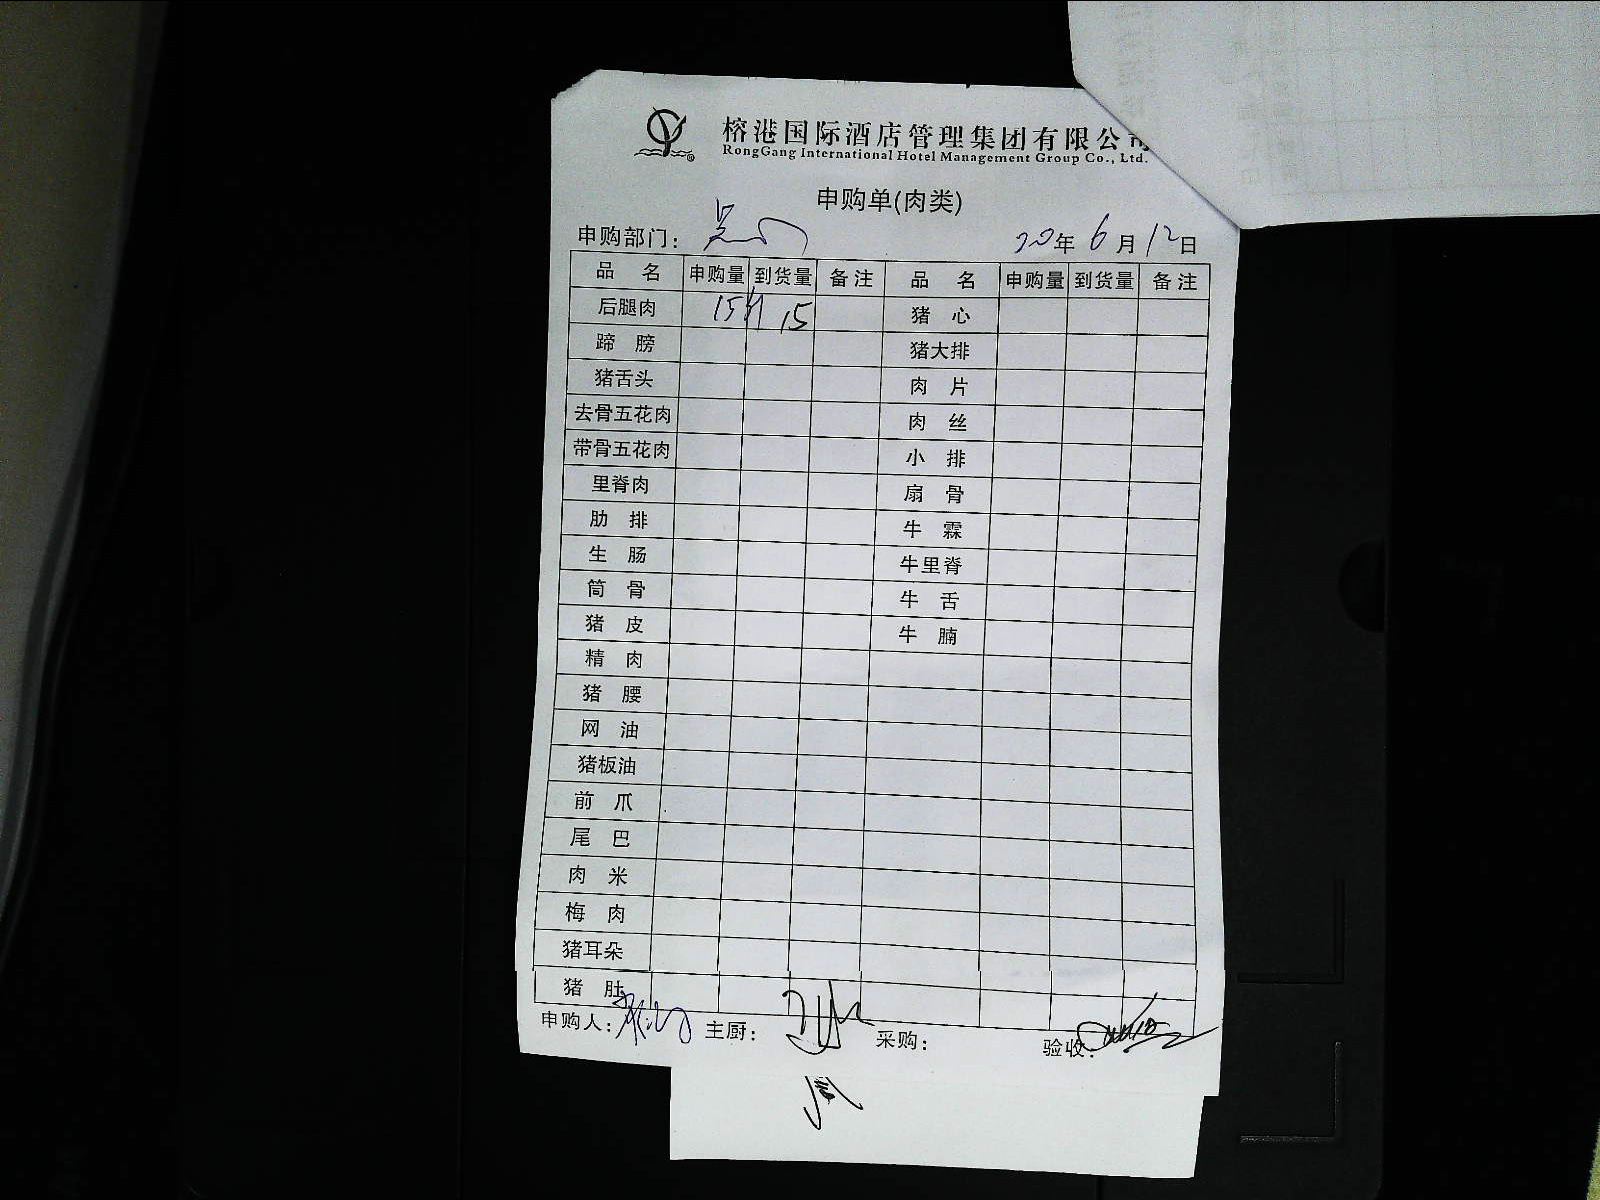 榕港国际酒店管理集团有限公司
RongGang International Hotel Management Group Co., Ltd.
申购单(肉类)
申购部门： 20年 6月 12日
品名 申购量 到货量 备注 品名 申购量 到货量 备注
后腿肉 15斤 15 猪心
蹄膀 猪大排
猪舌头 肉片
去骨五花肉 肉丝
带骨五花肉 小排
里脊肉 扇骨
肋排 牛霖
生肠 牛里脊
筒骨 牛舌
猪皮 牛腩
精肉
猪腰
网油
猪板油
前爪
尾巴
肉米
梅肉
猪耳朵
猪肚
申购人： 主厨： 采购： 验收：